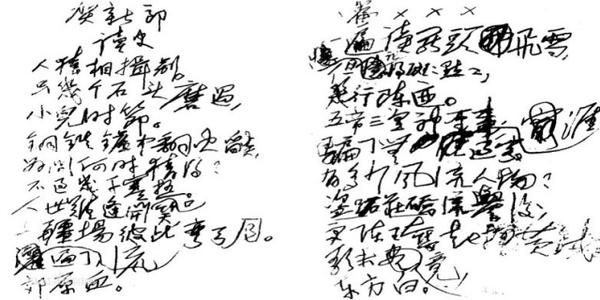 贺新郎
读史
人猿相揖别。
只幾个石头磨过,
小儿时節。
铜铁鑪中翻火焰,
为问何时猜得?
不过幾千寒热。
人世难逢開口
疆場彼此弯弓月。
遍了 流
郊原血。
× × ×
一篇读罢頭飛雪,
斑二點二,
幾行陈迹。
五帝三皇神 事, 無涯
骗了 过客。
有多少风流人物?
盗跖莊蹻流誉後,
更陈王奮起 黄钺
歌未竟,
东方白。